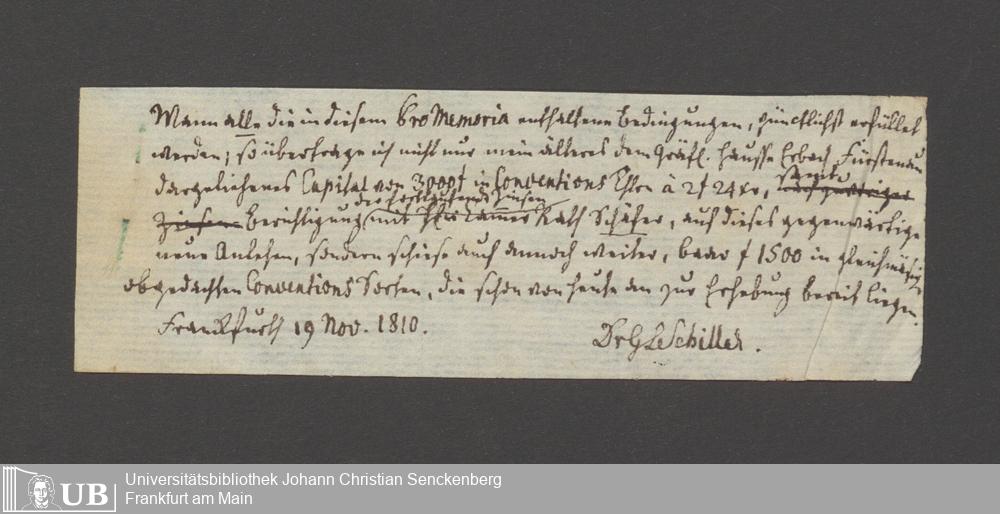 Wann alle die in diesem Pro Memoria enthaltene Bedingungen, pünctlichst erfüllet
werden; so übertrage ich nicht nur mein älteres dem Gräfl. Hausse Erbach Fürstenau
dargeliehenes Capital von 3000f in Conventions Thlrn à 2f 24xr,
der fortlaufenden Zinsen
Zinsen Berichtigung mit Rath Schäfer, auf dieses gegenwärtige
neue Anlehen, sondern schiese auch annoch weiter, baar f 1500 in gleichmäsig
obgedachten Conventions Sorten, die schon von heute an zur Erhebung bereit liegen.
Franckfurth 19 Nov. 1810.
Dr G Schiller.
Universitätsbibliothek Johann Christian Senckenberg
Frankfurt am Main
UB